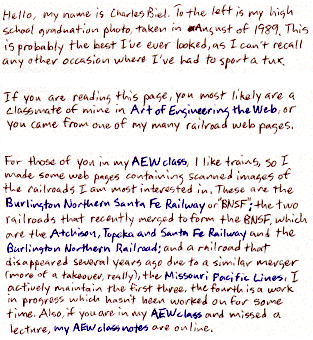 Hello, my name is Charles Biel. To the left is my high
school graduation photo, taken in August of 1989. This
is probably the best I've ever looked, as I can't recall
any other occasion where I've had to sport a tux.
If you are reading this page, you most likely are a
classmate of mine in Art of Engineering the Web, or
you came from one of my many railroad web pages.
For those of you in my AEW class, I like trains, so I
made some web pages containing scanned images of
the railroads I am most interested in. These are the
Burlington Northern Santa Fe Railway or "BNSF"; the two
railroads that recently merged to form the BNSF, which
are the Atchison, Topeka and Santa Fe Railway and the
Burlington Northern Railroad; and a railroad that
disappeared several years ago due to a similar merger
(more of a takeover, really), the Missouri Pacific Lines. I
actively maintain the first three, the fourth is a work
in progress which hasn't been worked on for some
time. Also, if you are in my AEW class and missed a
lecture, my AEW class notes are online.